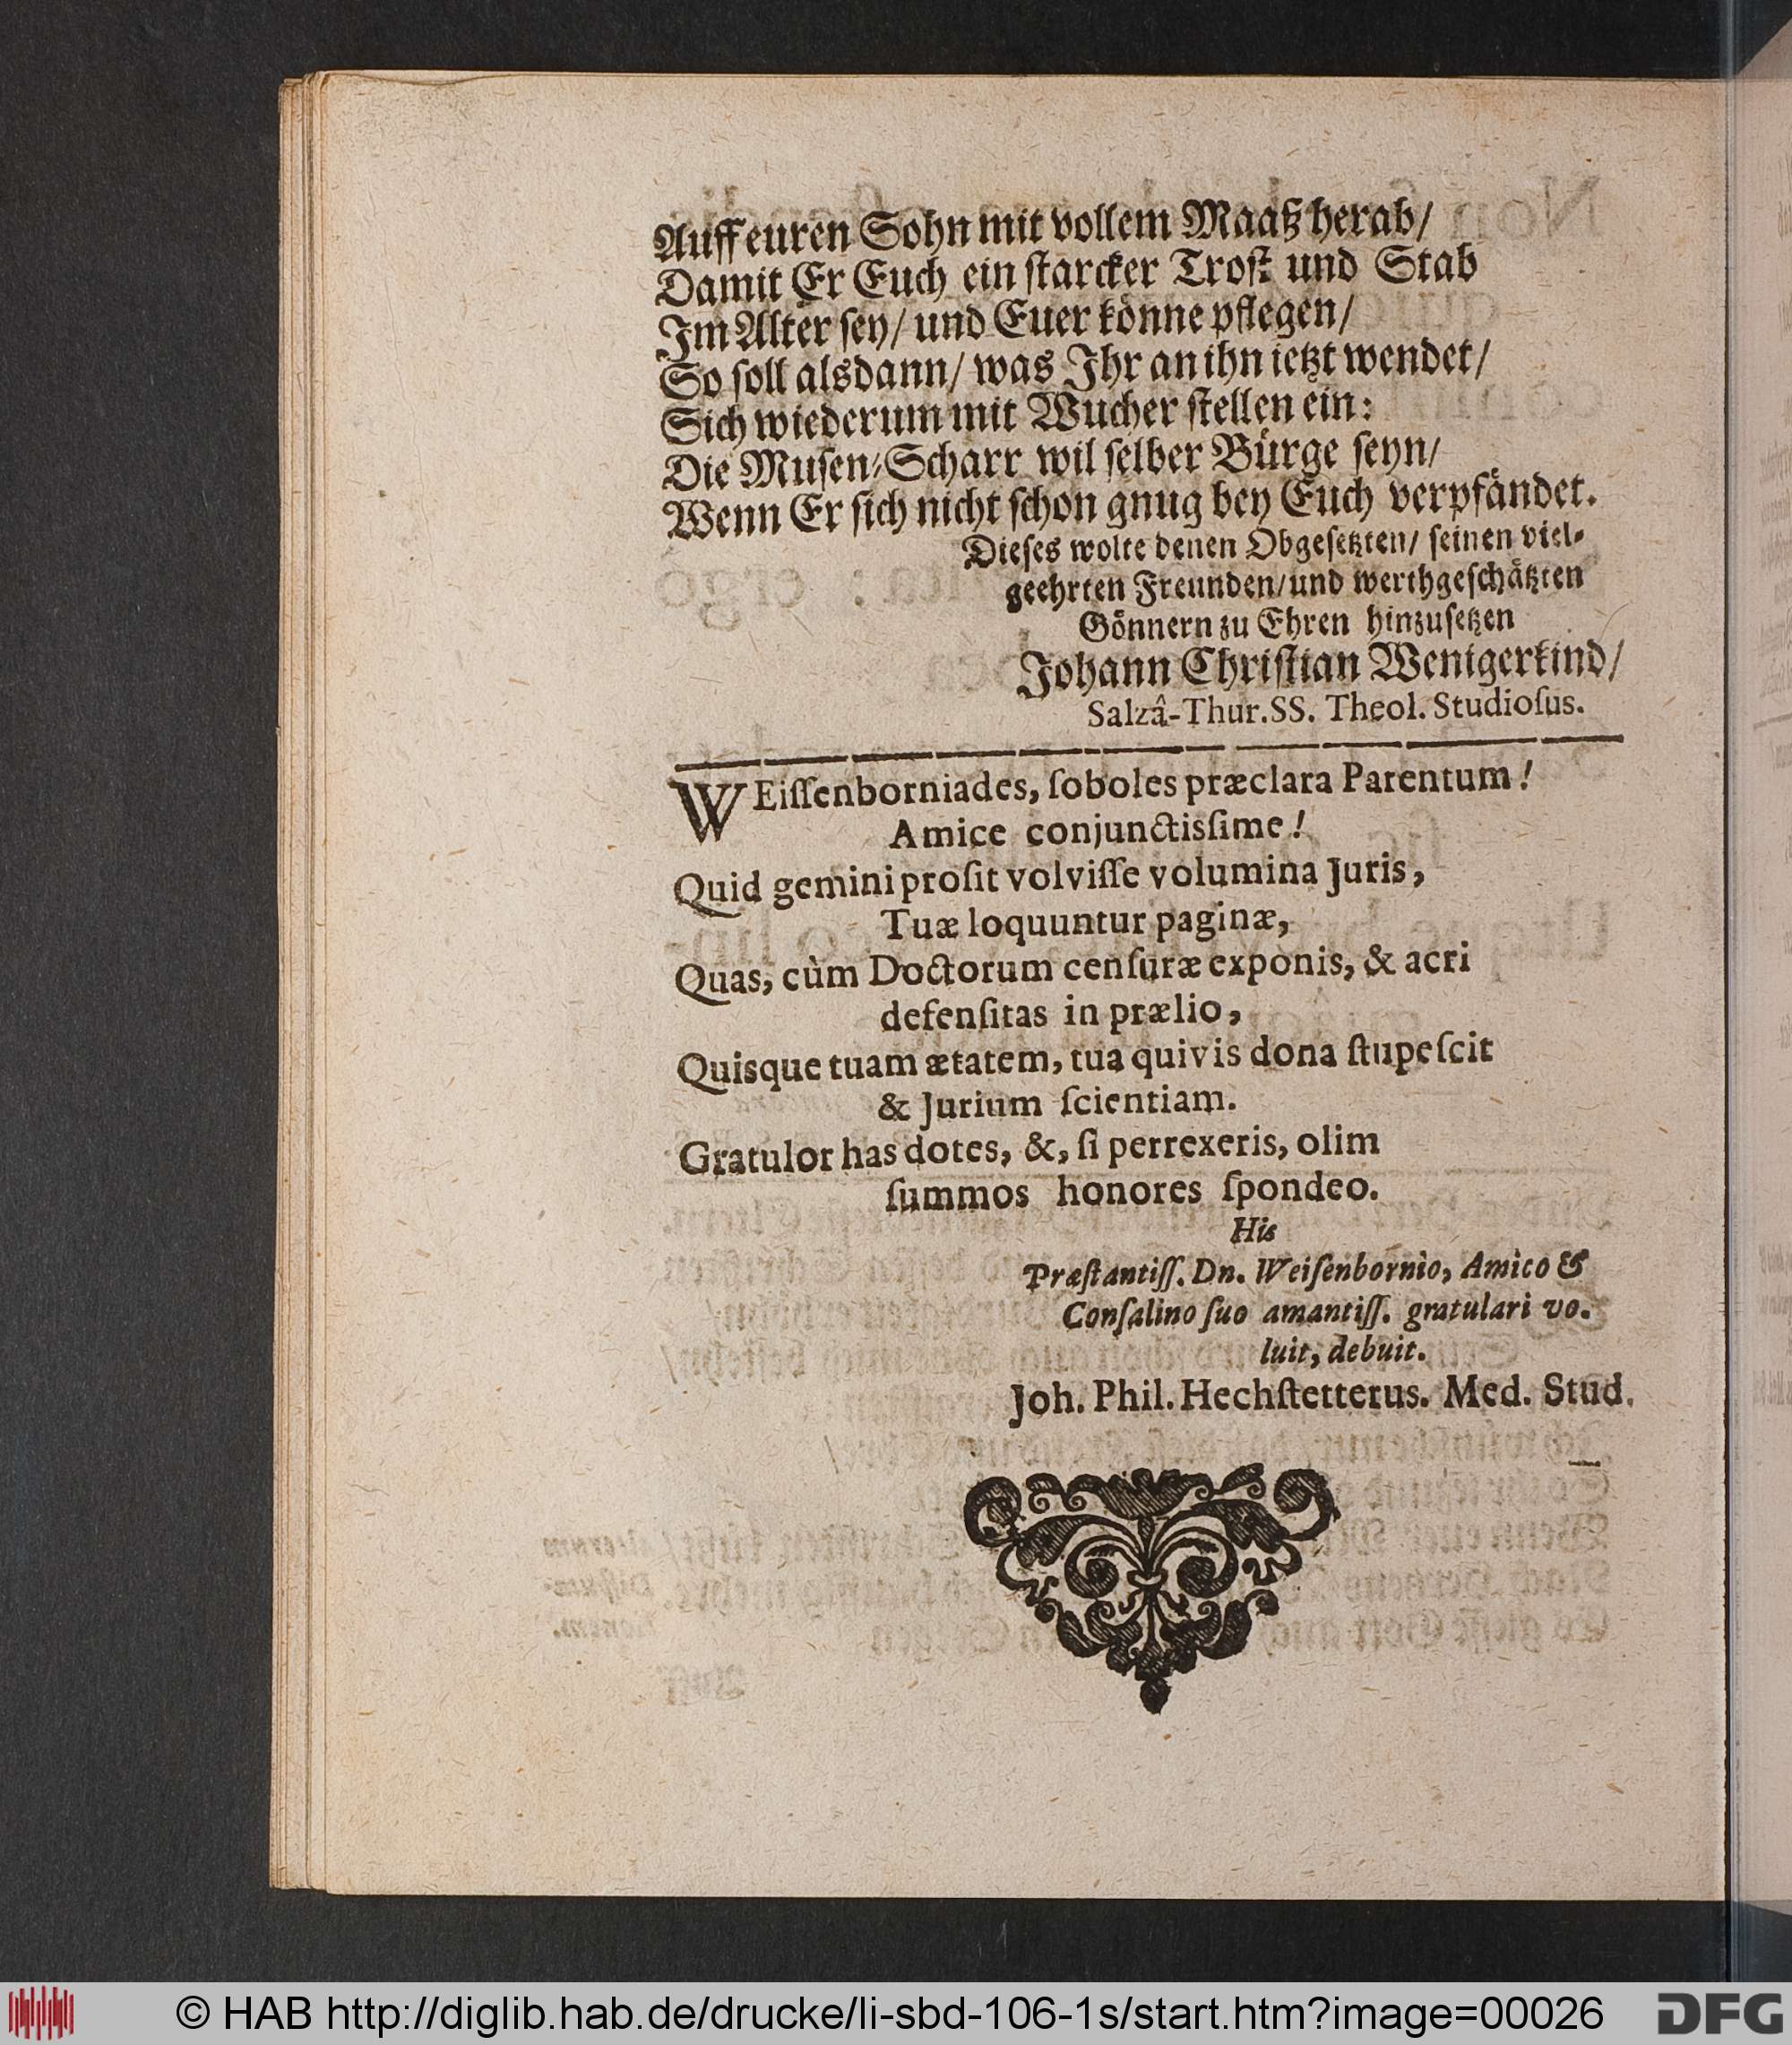 Auff euren Sohn mit vollem Maaß herab/
Damit Er Euch ein starcker Trost und Stab
Im Alter sey/ und Euer könne pflegen/
So soll alsdann/ was Ihr an ihn ietzt wendet/
Sich wiederum mit Wucher stellen ein:
Die Musen-Scharr wil selber Bürge seyn/
Wenn Er sich nicht schon gnug bey Euch verpfändet.
Dieses wolte denen Obgesetzten/ seinen viel-
geehrten Freunden/ und werthgeschätzten
Gönnern zu Ehren hinzusetzen
Johann Christian Wenigerkind/
Salzâ-Thur. SS. Theol. Studioſus.
WEiſſenborniades, ſoboles præclara Parentum!
Amice conjunctisſime!
Quid gemini proſit volviſſe volumina Juris,
Tuæ loquuntur paginæ,
Quas, cùm Doctorum cenſuræ exponis, & acri
defenſitas in prælio,
Quisque tuam ætatem, tua quivis dona ſtupeſcit
& Jurium ſcientiam.
Gratulor has dotes, &, ſi perrexeris, olim
ſummos honores ſpondeo.
His
Præſtantiſſ. Dn. Weiſenbornio, Amico &
Conſalino ſuo amantiſſ. gratulari vo-
luit, debuit.
Joh. Phil. Hechſtetterus. Med. Stud.
© HAB http://diglib.hab.de/drucke/li-sbd-106-1s/start.htm?image=00026
DFG